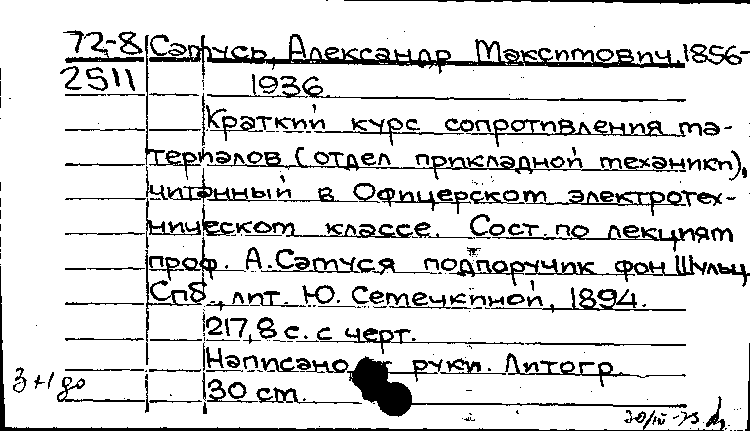 72-8 Самусь, Александр Максимович, 1856-
2511 1936.
Краткий курс сопротивления ма-
териалов (отдел прикладной механики),
читанный в Офицерском электротех-
ническом классе. Сост. по лекциям
проф. А. Самуся подпоручик фон Шульц
Спб., лит. Ю. Семечкиной, 1894.
217,8 с. с черт.
Написано от руки. Литогр.
30 см.
3+1 до